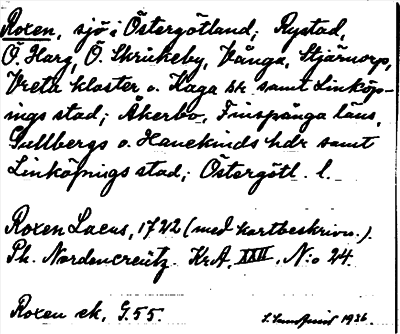 Roxen, sjö i Östergötland; Rystad,
Ö. Harg, Ö. Skrukeby, Vånga, Stjärnorp,
Vreta kloster o. Kaga sk samt Linköp-
ings stad; Åkerbo, Finspånga läns,
Gullbergs o. Hanekinds hdr samt
Linköpings stad; Östergötl. l.
Roxen Lacus, 1722 (med kartbeskrivn.).
Ph. Nordencreutz. KrA, XXII, N:o 24.
Roxen ek, G.55.
1936